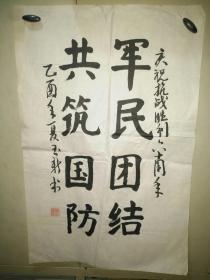 庆祝抗战胜利六十周年
军民团结
共筑国防
乙酉年夏玉新书